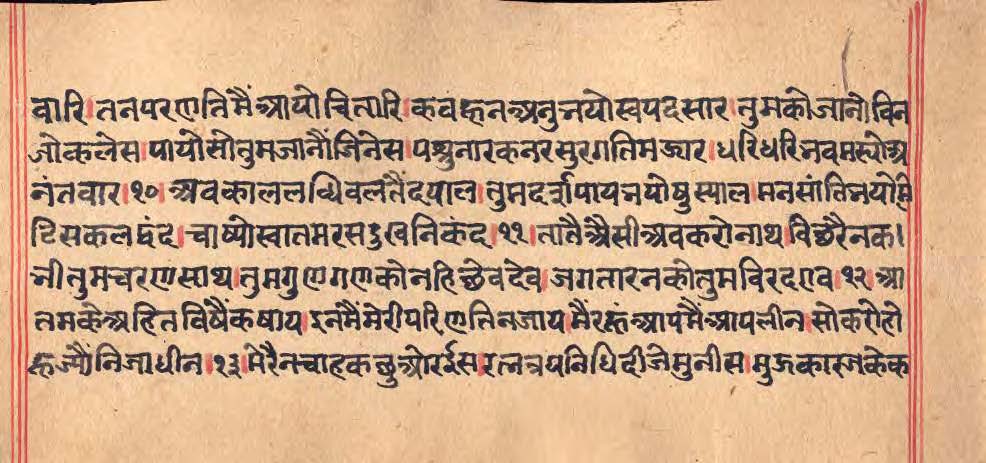 वारि।तनपरणतिमैंआयोचितारि कवहूनअनुभयोस्वपदसार तुमकोजानेविन
जोकलेस।पायोसोतुमजानौंजिनेस।पशुनारकनरसुरगतिमझार।धरिधरिभवमस्योअ
नंतवार।१०।अवकाललब्धिवलतैंदयाल।तुमदर्शपायभयोषुस्याल मनसांतिभयोमि
टिसकलद्वंद।चाष्योस्वातमरसदुखनिकंद।११।तातैंअैसीअवकरोनाथ विछुरैनक।
भीतुमचरणसाथ।तुमगुणगणकोनहिछेवदेव।जगतारनकोतुमविरदएव।१२।आ
तमकेअहितविषैंकषाय इनमैंमेरीपरिणतिनजाय।मैंरहूंआपमैंआपलीन।सोकरोहो
हूज्यौंनिजाधीन।१३।मेरैनचाहकछुओरईस रत्नत्रयनिधिदीजेमुनीस।मुजकारजकेक